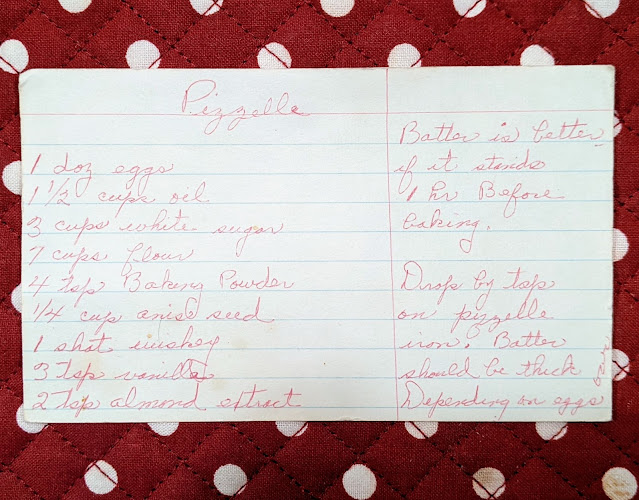 Pizzelle
1 doz eggs
1 1/2 cups oil
3 cups white sugar
7 cups flour
4 tsp Baking Powder
1/4 cup anise seed
1 shot wiskey
3 tsp vanilla
2 tsp almond extract
Batter is better
if it stands
1 hr Before
baking.
Drop by tsp
on pizzelle
iron. Batter
should be thick
Depending on eggs